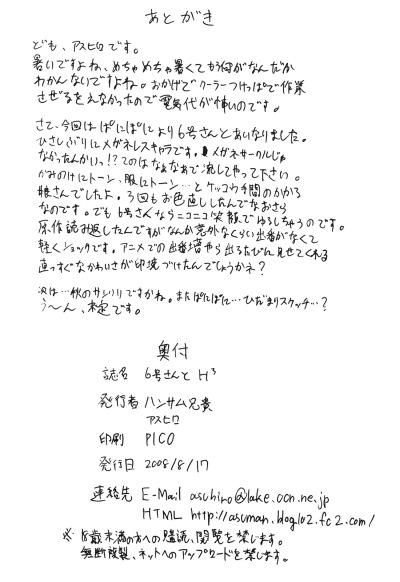 あとがき
ども、アスヒロです。
暑いですよね、めちゃめちゃ暑くてもう何がなんだか
わかんないですよね。おかげでクーラーつけっぱで作業
させるをえなかったので電気代が怖いのです。
さて、今回はぱにぽにより6号さんとあいなりました。
ひさしぶりにメガネレスキャラです。メガネサークルじゃ
なかったんかいっ!?てのはなぁなあで流してやって下さい。
かみのけにトーン、服にトーン…とケッコウ手間のかかる
娘さんでしたよ。3回もお色直ししたんでなおさら
なのです。でも6号さんならニコニコ笑顔でゆるしちゃうのです。
原作読み返したんですがなんか意外なくらい出番がなくて
軽くショックです。アニメでの出番増やら出るたびに見せてくれる
直っすぐなかわいさが印象づけたんでしょうかネ?
次は…秋のサンクリですかね。またぱにぽに…ひだまりスケッチ…?
う~ん、未定です。
奥付
誌名 6号さんとH³
発行者 ハンサム兄貴
アスヒロ
印刷 PICO
発行日 2008/8/17
連絡先 E-Mail asuhiro@lake.ocn.ne.jp
HTML http://asuman.blog102.fc2.com/
※18歳未満の方への購読、閲覧を禁じます。
無断複製、ネットへのアップロードを禁じます。